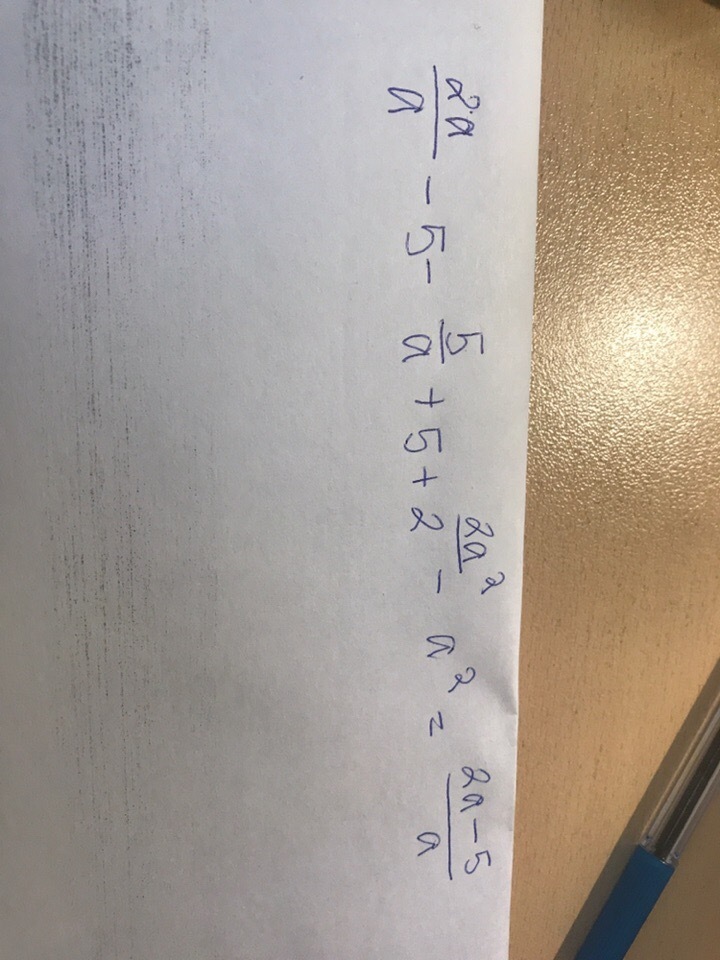 2a/a - 5 - 5/a + 5 + 2a²/2 - a² = 2a-5/a